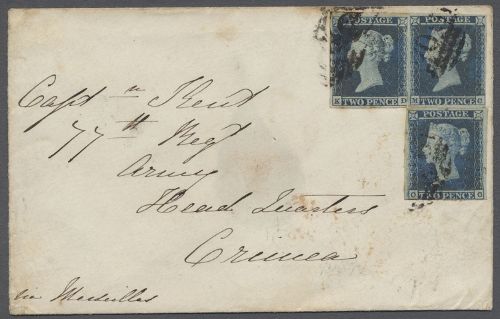 POSTAGE POSTAGE
K TWO PENCE D M TWO PENCE C
POSTAGE
TWO PENCE
Capt n Kent
77th Regt
Army
Head Quarters
Crimea
via Marseilles